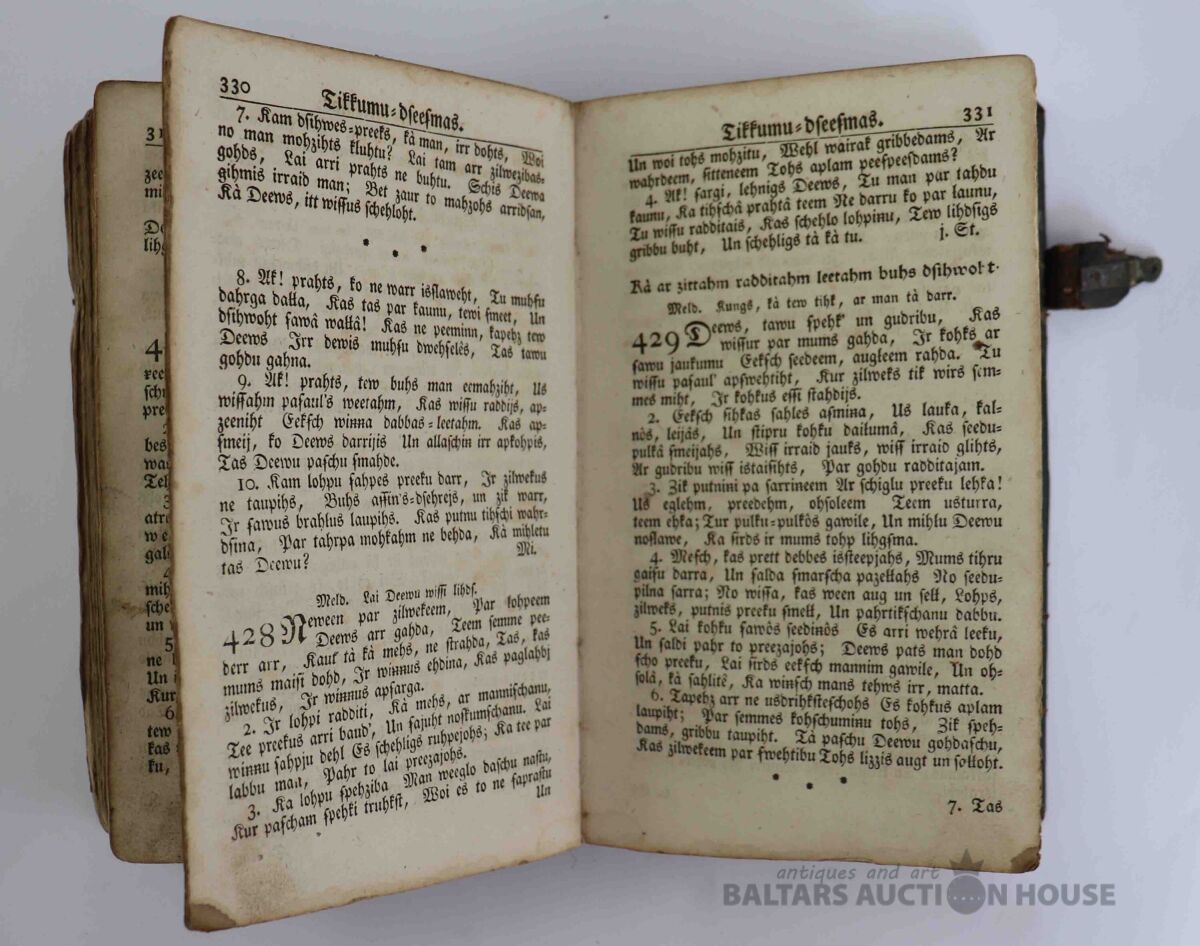 330
Tikkumu-dſeeſmas.
7. Kam dſihwes-preeks, kà man, irr dohts, Woi
no man mohzihts kluhtu? Lai tam arr zilwezibas-
gohds, Lai arri prahts ne buhtu. Schis Deewa
gihmis irraid man; Bet zaur to mahzohs arridſan,
Kà Deews, itt wiſſus ſchehloht.
* * *
8. Ak! prahts, ko ne warr isſlaweht, Tu muhſu
dahrga daļļa, Kas tas par kaunu, tewi ſmeet, Un
dſihwoht ſawâ waļļâ! Kas ne peeminn, kapehz tew
Deews Irr dewis muhſu dwehſelês, Tas tawu
gohdu gahna.
9. Ak! prahts, tew buhs man eemahziht, Us
wiſſahm paſaul's weetahm, Kas wiſſu raddijs, ap-
zeeniht Eekſch winna dabbas-leetahm. Kas ap-
ſmeij, ko Deews darrijis Un allaſchin irr apkohpis,
Tas Deewu paſchu ſmahde.
10. Kam lohpu ſahpes preeku darr, Ir zilwekus
ne taupihs, Buhs aſſin's-dſehrejs, un zik warr,
Ir ſawus brahļus laupihs. Kas putnu tihſchi wahr-
dſina, Par tahrpa mohkahm ne behda, Kà mihletu
tas Deewu?
Mi.
Meld. Lai Deewu wiſſi lihdſ.
428 Neween par zilwekeem, Par lohpeem
Deews arr gahda, Teem ſemme pee-
derr arr, Kaut tà kà mehs, ne ſtrahda, Tas, kas
mums maiſi dohd, Ir winnus ehdina, Kas paglahbj
zilwekus, Ir winnus apſarga.
2. Ir lohpi radditi, Kà mehs, ar manniſchanu,
Tee preekus arri bauď, Un ſajuht noſkumſchanu. Lai
winnu ſahpju dehļ Es ſchehligs ruhpejohs; Ka tee par
labbu man, Pahr to lai preezajohs.
3. Ka lohpu ſpehziba Man weeglo daſchu naſtu,
Kur paſcham ſpehki truhkſt, Woi es to ne ſapraſtu
Un
331
Tikkumu-dſeeſmas.
Un woi tohs mohzitu, Wehl wairak gribbedams, Ar
wahrdeem, ſitteneem Tohs aplam peeſpeeſdams?
4. Ak! ſargi, lehnigs Deews, Tu man par tahdu
kaunu, Ka tihſchâ prahtâ teem Ne darru ko par ļaunu,
Tu wiſſu radditais, Kas ſchehlo lohpinu, Tew lihdſigs
gribbu buht, Un ſchehligs tà kà tu. j. St.
Kà ar zittahm radditahm leetahm buhs dſihwoht.
Meld. Kungs, kà tew tihk, ar man tà darr.
429 Deews, tawu ſpehk' un gudribu, Kas
wiſſur par mums gahda, Ir kohks ar
ſawu jaukumu Eekſch ſeedeem, augļeem rahda. Tu
wiſſu paſaul' apſwehtiht, Kur zilweks tik wirs ſem-
mes miht, Ir kohkus eſſi ſtahdijs.
2. Eekſch ſihkas ſahles aſmina, Us lauka, kal-
nôs, leijâs, Un ſtipru kohku daiļumâ, Kas ſeedu-
pulkâ ſmeijahs, Wiſſ irraid jauks, wiſſ irraid glihts,
Ar gudribu wiſſ istaiſihts, Par gohdu radditajam.
3. Zik putnini pa ſarrineem Ar ſchiglu preeku lehka!
Us eglehm, preedehm, ohſoleem Teem usturra,
teem ehka; Tur pulku-pulkôs gawile, Un mihļu Deewu
noſlawe, Ka ſirds ir mums tohp lihgſma.
4. Meſch, kas prett debbes isſteepjahs, Mums tihru
gaiſu darra, Un ſalda ſmarſcha pazeļļahs No ſeedu-
pilna ſarra; No wiſſa, kas ween aug un ſeļļ, Lohps,
zilweks, putnis preeku ſmeļļ, Un pahrtikſchanu dabbu.
5. Lai kohku ſawôs ſeedinôs Es arri wehrâ leeku,
Un ſaldi pahr to preezajohs; Deews pats man dohd
ſcho preeku, Lai ſirds eekſch mannim gawile, Un oh-
ſolâ, kà ſahlitê, Ka winſch mans tehws irr, matta.
6. Tapehz arr ne usdrihkſteſchohs Es kohkus aplam
laupiht; Par ſemmes kohſchuminu tohs, Zik ſpeh-
dams, gribbu taupiht. Tà paſchu Deewu gohdaſchu,
Kas zilwekeem par ſwehtibu Tohs lizzis augt un ſaļļoht.
* * *
7. Tas
antiques and art
BALTARS AUCTION HOUSE